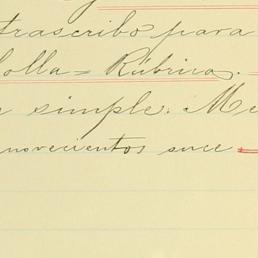 trascribo para
olla = Rúbrica.
simple. Me
novecientos once